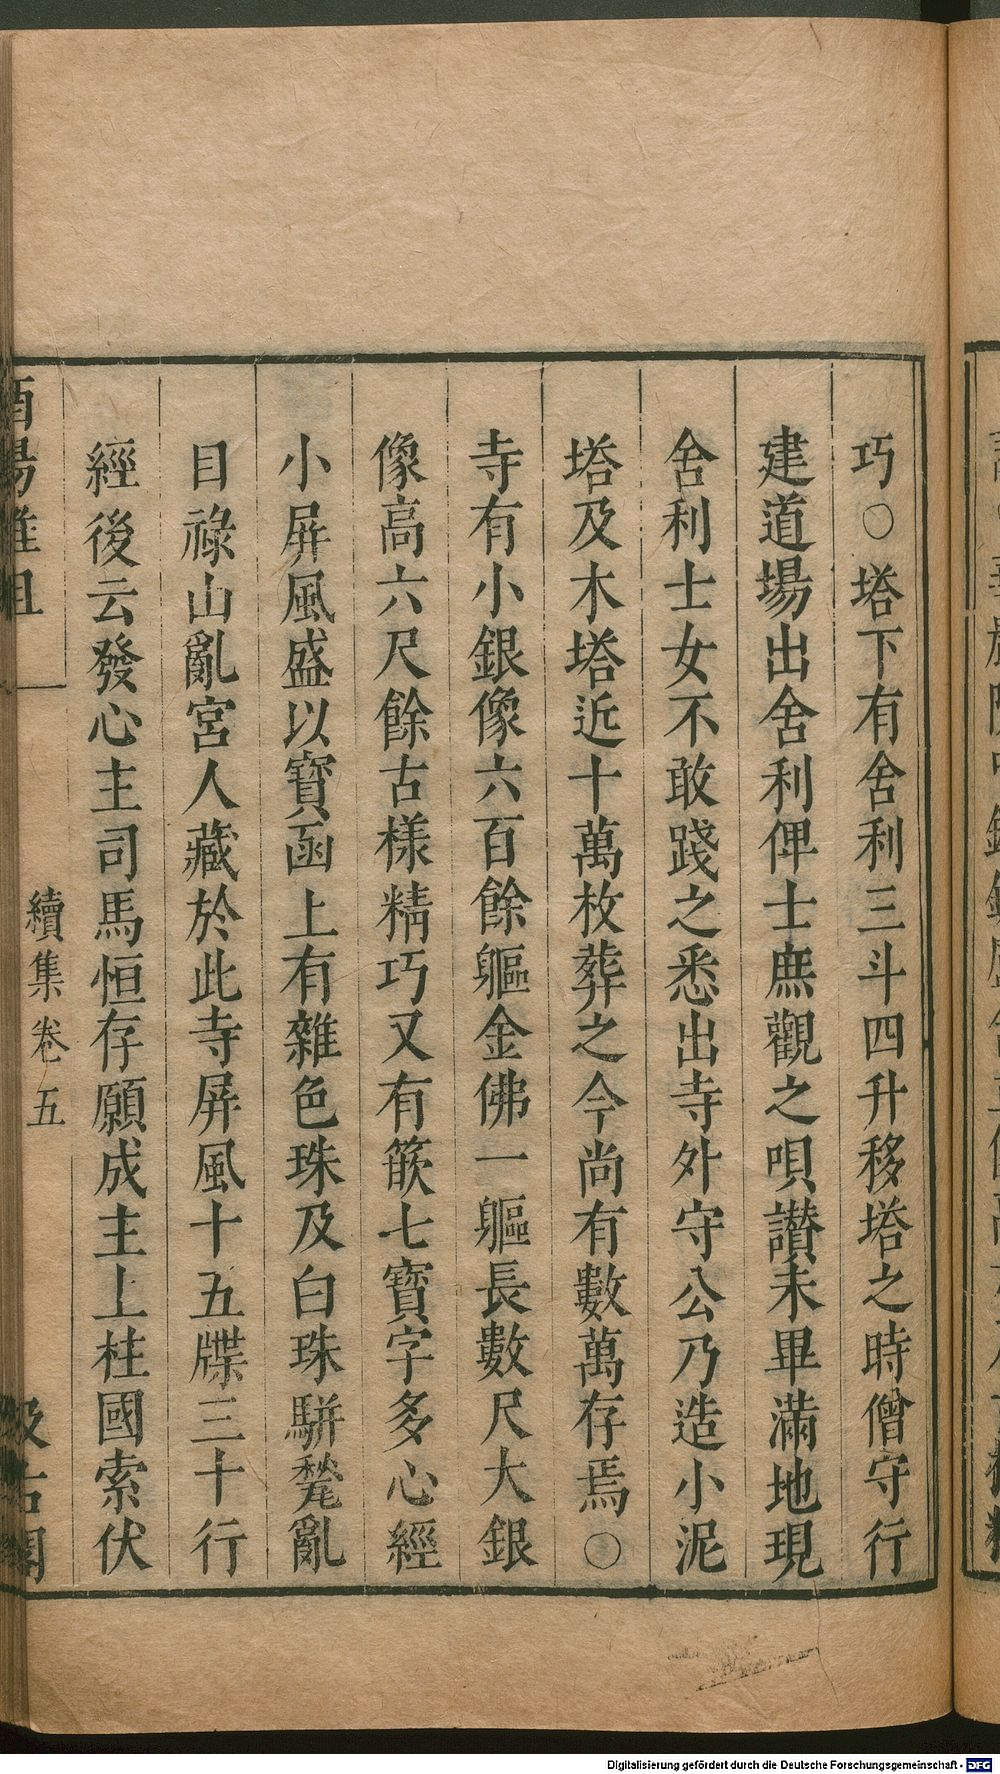 巧○塔下有舍利三斗四升移塔之時僧守行
建道場出舍利俾士庶觀之唄讃未畢滿地現
舍利士女不敢踐之悉出寺外守公乃造小泥
塔及木塔近十萬枚葬之今尚有數萬存焉○
寺有小銀像六百餘軀金佛一軀長數尺大銀
像高六尺餘古樣精巧又有篏七寶字多心經
小屏風盛以寶函上有雜色珠及白珠駢甃亂
目祿山亂宮人藏於此寺屏風十五牒三十行
經後云發心主司馬恒存願成主上柱國索伏
酉陽雜俎
續集卷五
汲古閣
Digitalisierung gefördert durch die Deutsche Forschungsgemeinschaft - DFG